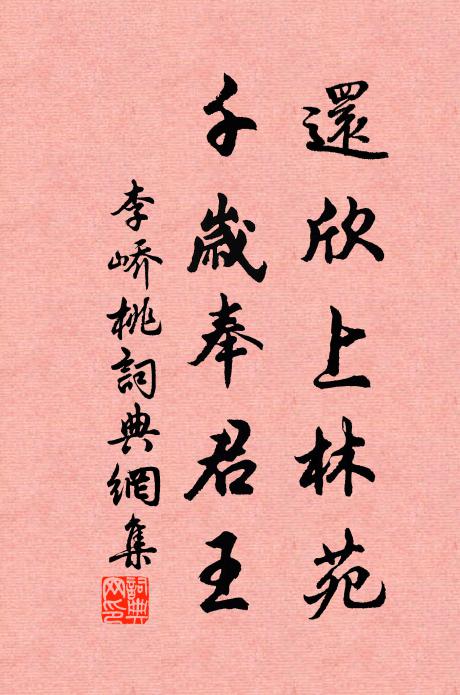 還欣上林苑
千歲奉君王
李嶠桃詞典網集
詞典網印